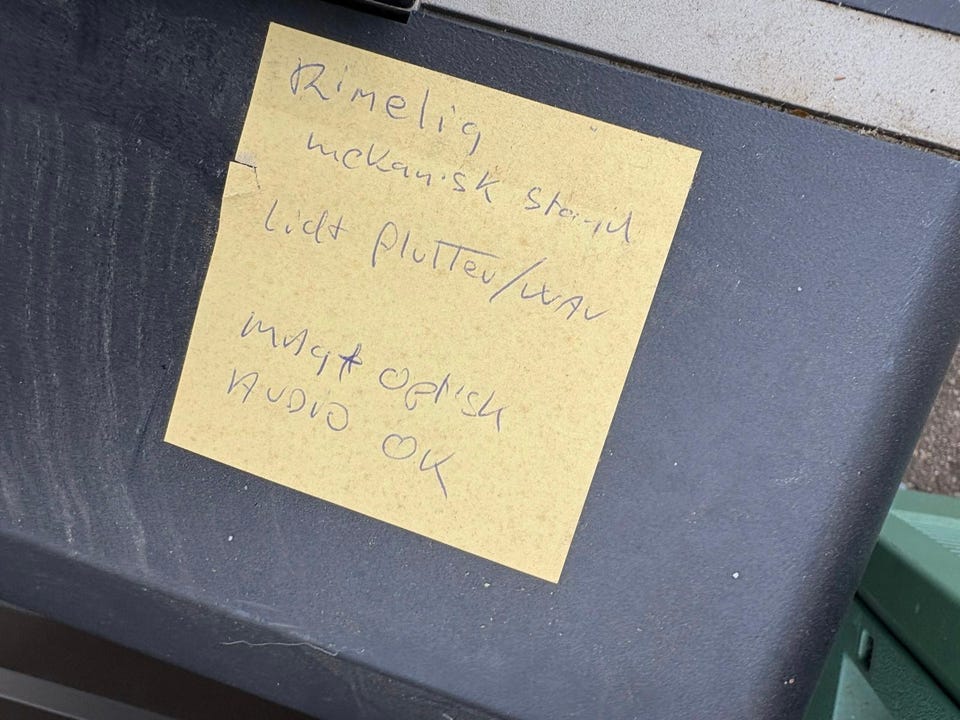 Rimelig
mekanisk stand
lidt flutter/WAV
magt optisk
AUDIO OK